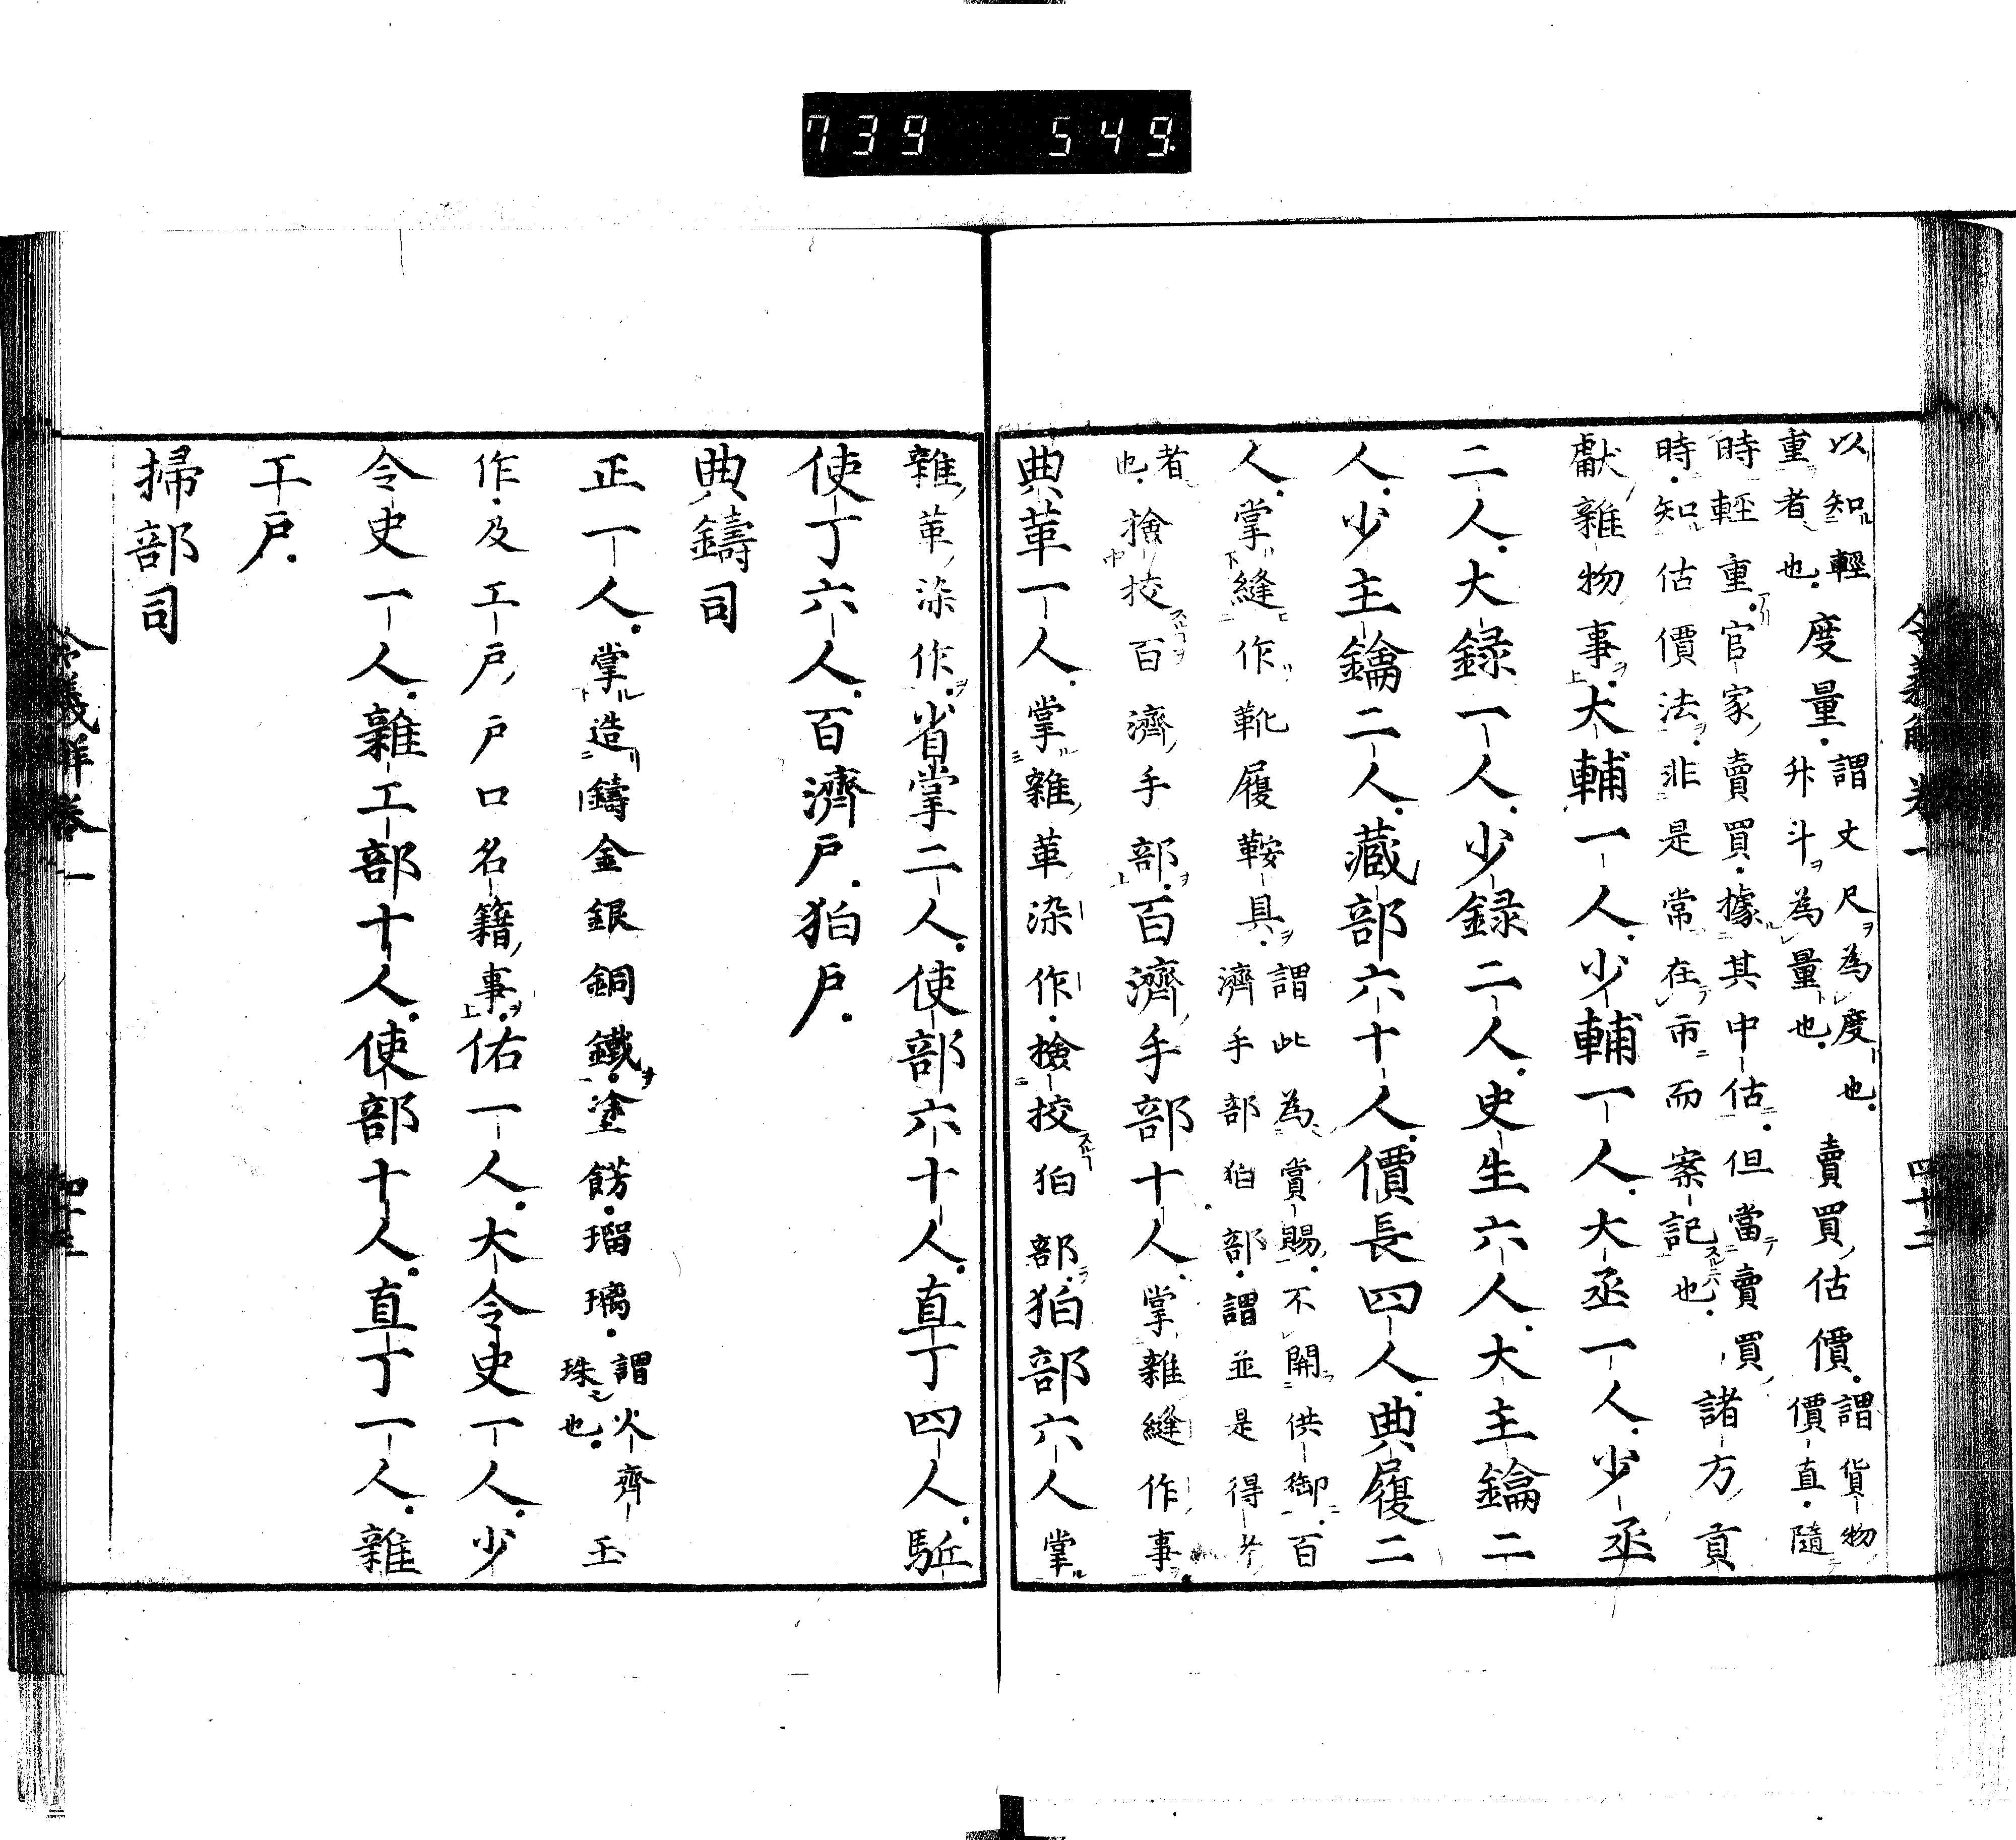 739 549
以知輕
重者也。
度量。
謂丈尺為度也。
升斗為量也。
賣買估價。
謂貨物
價直。隨
時輕重。官家賣買。據其中估。但當賣買
時。知估價法。非是常在市而案記也。
諸方貢
獻雜物事。大輔一人。少輔一人。大丞一人。少丞
二人。大録一人。少録二人。史生六人。大主鑰二
人。少主鑰二人。藏部六十人。價長四人。典履二
人。掌縫作靴履鞍具。
謂此為賞賜。不開供御。百
濟手部狛部。謂並是得考
者
也。
撿挍百濟手部。百濟手部十人。掌雜縫作事。
典革一人。掌雜革染作。撿挍狛部。狛部六人掌
雜革染作。省掌二人。使部六十人。直丁四人。駈
使丁六人。百濟戶。狛戶。
典鑄司
正一人。掌造鑄金銀銅鐵。塗餝。瑠璃。
謂火齊
珠也。
玉
作。及工戶戶口名籍事。佑一人。大令史一人。少
令史一人。雜工部十人。使部十人。直丁一人。雜
工戶。
掃部司